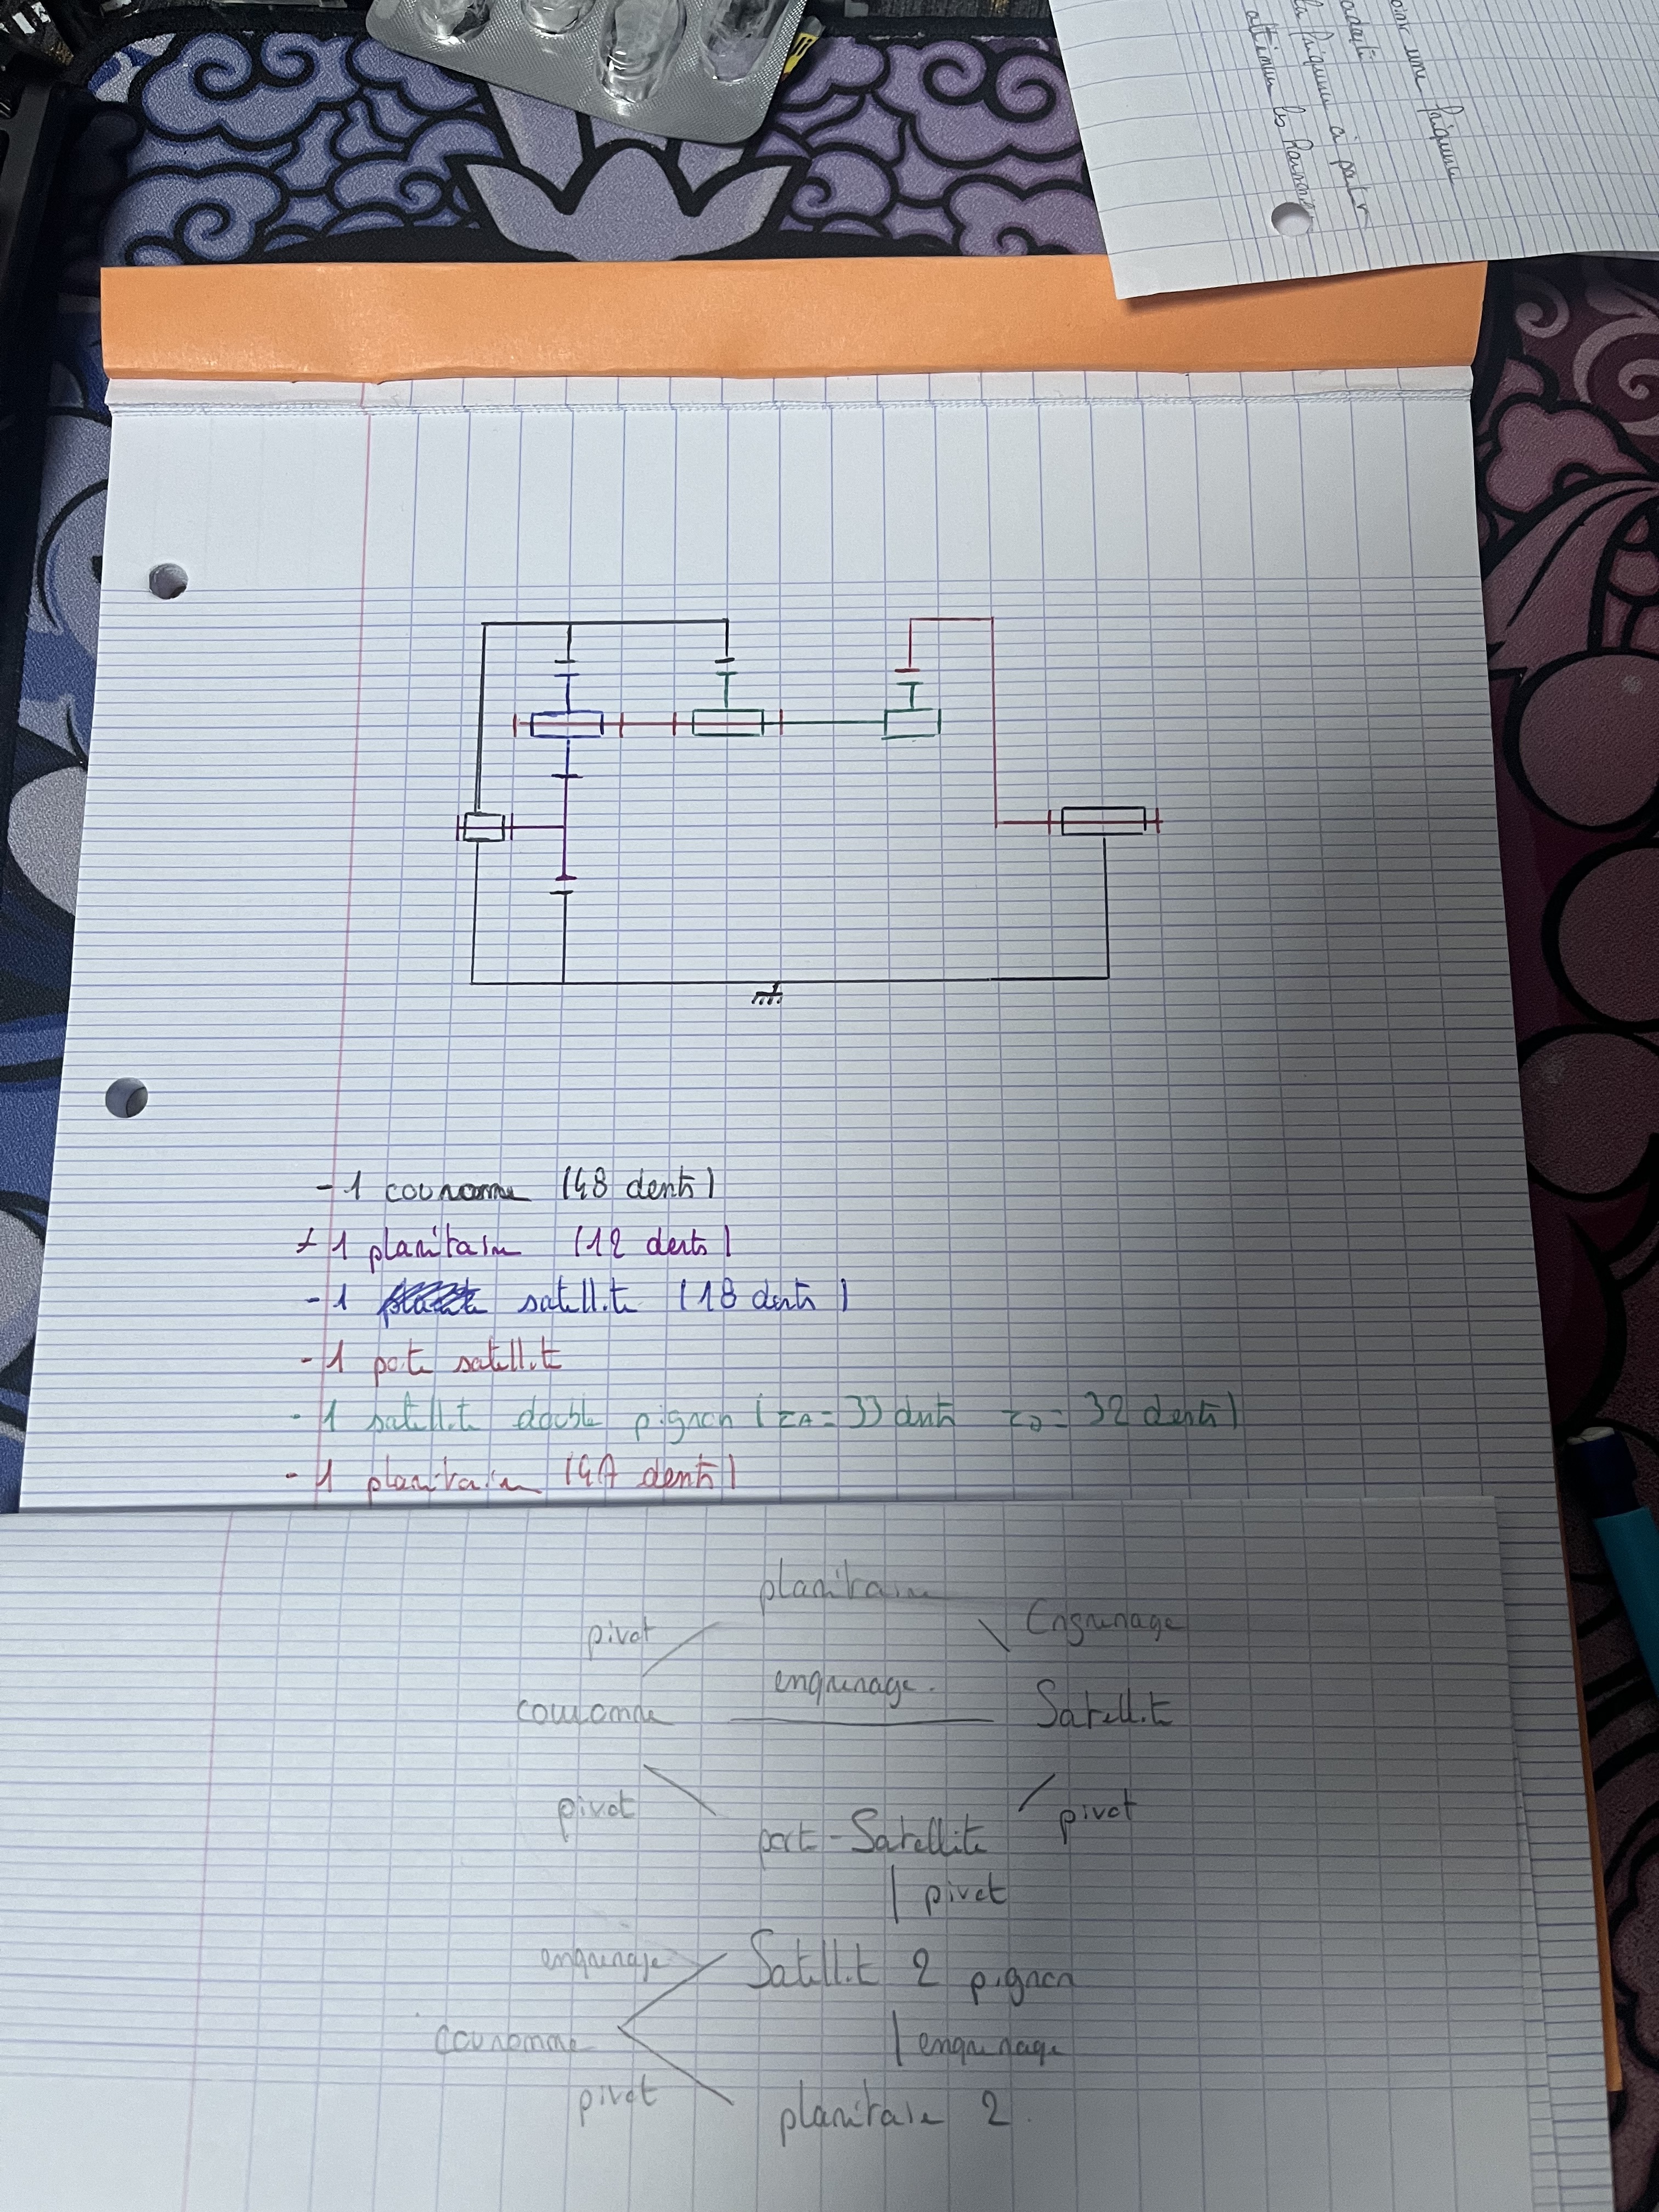 oint une fréquence
la fréquence à partir
atténue les harmoni
- 1 couronne (48 dents)
+ 1 planétaire (12 dents)
- 1 satellite (18 dents)
- 1 porte satellite
- 1 satellite double pignon (ZA = 33 dents ZB = 32 dents)
- 1 planétaire (47 dents)
planétaire
pivot
Engrenage
engrenage.
couronne
Satellite
pivot
pivot
port-Satellite
pivot
engrenage
Satellite 2 pignon
couronne
engrenage
pivot
planétaire 2.